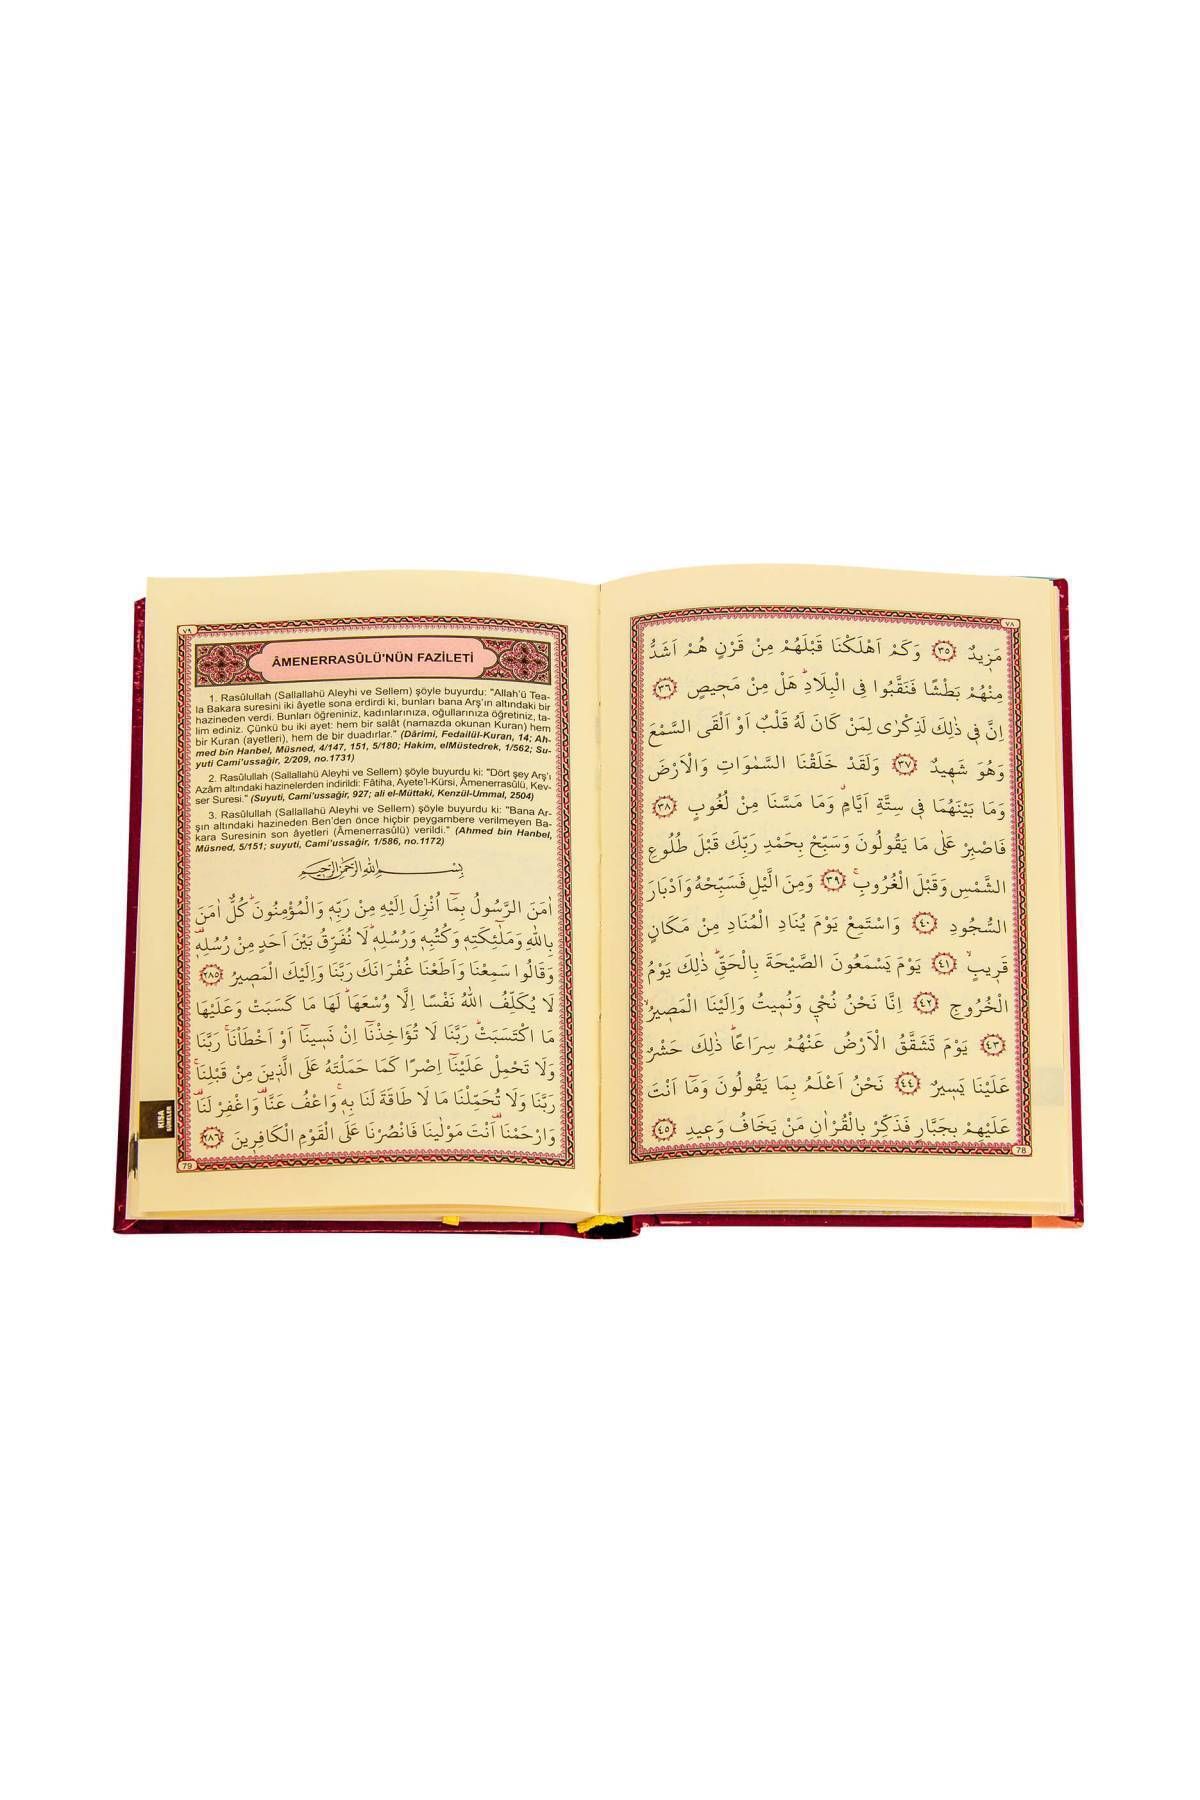 ٧٨
مَزٖيدٌ ﴿٣٥﴾ وَكَمْ اَهْلَكْنَا قَبْلَهُمْ مِنْ قَرْنٍ هُمْ اَشَدُّ
مِنْهُمْ بَطْشًا فَنَقَّبُوا فِى الْبِلَادِۜ هَلْ مِنْ مَحٖيصٍ ﴿٣٦﴾
اِنَّ فٖى ذٰلِكَ لَذِكْرٰى لِمَنْ كَانَ لَهُ قَلْبٌ اَوْ اَلْقَى السَّمْعَ
وَهُوَ شَهٖيدٌ ﴿٣٧﴾ وَلَقَدْ خَلَقْنَا السَّمٰوَاتِ وَالْاَرْضَ
وَمَا بَيْنَهُمَا فٖى سِتَّةِ اَيَّامٍۗ وَمَا مَسَّنَا مِنْ لُغُوبٍ ﴿٣٨﴾
فَاصْبِرْ عَلٰى مَا يَقُولُونَ وَسَبِّحْ بِحَمْدِ رَبِّكَ قَبْلَ طُلُوعِ
الشَّمْسِ وَقَبْلَ الْغُرُوبِۚ ﴿٣٩﴾ وَمِنَ الَّيْلِ فَسَبِّحْهُ وَاَدْبَارَ
السُّجُودِ ﴿٤٠﴾ وَاسْتَمِعْ يَوْمَ يُنَادِ الْمُنَادِ مِنْ مَكَانٍ
قَرٖيبٍۙ ﴿٤١﴾ يَوْمَ يَسْمَعُونَ الصَّيْحَةَ بِالْحَقِّۜ ذٰلِكَ يَوْمُ
الْخُرُوجِ ﴿٤٢﴾ اِنَّا نَحْنُ نُحْيٖ وَنُمٖيتُ وَاِلَيْنَا الْمَصٖيرُۙ
﴿٤٣﴾ يَوْمَ تَشَقَّقُ الْاَرْضُ عَنْهُمْ سِرَاعًاۜ ذٰلِكَ حَشْرٌ
عَلَيْنَا يَسٖيرٌ ﴿٤٤﴾ نَحْنُ اَعْلَمُ بِمَا يَقُولُونَ وَمَٓا اَنْتَ
عَلَيْهِمْ بِجَبَّارٍ فَذَكِّرْ بِالْقُرْاٰنِ مَنْ يَخَافُ وَعٖيدِ ﴿٤٥﴾
78
٧٩
ÂMENERRASÛLÜ'NÜN FAZİLETİ
1. Rasûlullah (Sallallahü Aleyhi ve Sellem) şöyle buyurdu: "Allah'ü Tea-
la Bakara suresini iki âyetle sona erdirdi ki, bunları bana Arş'ın altındaki bir
hazineden verdi. Bunları öğreniniz, kadınlarınıza, oğullarınıza öğretiniz, ta-
lim ediniz. Çünkü bu iki ayet: hem bir salât (namazda okunan Kuran) hem
bir Kuran (ayetleri), hem de bir duadırlar." (Dârimi, Fedailül-Kuran, 14; Ah-
med bin Hanbel, Müsned, 4/147, 151, 5/180; Hakim, elMüstedrek, 1/562; Su-
yuti Cami'ussağir, 2/209, no.1731)
2. Rasûlullah (Sallallahü Aleyhi ve Sellem) şöyle buyurdu ki: "Dört şey Arş'ı
Azâm altındaki hazinelerden indirildi: Fâtiha, Ayete'l-Kürsi, Âmenerrasûlü, Kev-
ser Suresi." (Suyuti, Cami'ussağir, 927; ali el-Müttaki, Kenzül-Ummal, 2504)
3. Rasûlullah (Sallallahü Aleyhi ve Sellem) şöyle buyurdu ki: "Bana Ar-
şın altındaki hazineden Ben'den önce hiçbir peygambere verilmeyen Ba-
kara Suresinin son âyetleri (Âmenerrasûlü) verildi." (Ahmed bin Hanbel,
Müsned, 5/151; suyuti, Cami'ussağir, 1/586, no.1172)
بِسْمِ اللّٰهِ الرَّحْمٰنِ الرَّحٖيمِ
اٰمَنَ الرَّسُولُ بِمَٓا اُنْزِلَ اِلَيْهِ مِنْ رَبِّهٖ وَالْمُؤْمِنُونَۜ كُلٌّ اٰمَنَ
بِاللّٰهِ وَمَلٰٓئِكَتِهٖ وَكُتُبِهٖ وَرُسُلِهٖۜ لَا نُفَرِّقُ بَيْنَ اَحَدٍ مِنْ رُسُلِهٖ۠
وَقَالُوا سَمِعْنَا وَاَطَعْنَا غُفْرَانَكَ رَبَّنَا وَاِلَيْكَ الْمَصٖيرُ ﴿٢٨٥﴾
لَا يُكَلِّفُ اللّٰهُ نَفْسًا اِلَّا وُسْعَهَاۜ لَهَا مَا كَسَبَتْ وَعَلَيْهَا
مَا اكْتَسَبَتْۜ رَبَّنَا لَا تُؤَاخِذْنَٓا اِنْ نَسٖينَٓا اَوْ اَخْطَأْنَاۚ رَبَّنَا
وَلَا تَحْمِلْ عَلَيْنَٓا اِصْرًا كَمَا حَمَلْتَهُ عَلَى الَّذٖينَ مِنْ قَبْلِنَاۚ
رَبَّنَا وَلَا تُحَمِّلْنَا مَا لَا طَاقَةَ لَنَا بِهٖۚ وَاعْفُ عَنَّا۠ وَاغْفِرْ لَنَا۠
وَارْحَمْنَا۠ اَنْتَ مَوْلٰينَا فَانْصُرْنَا عَلَى الْقَوْمِ الْكَافِرٖينَ ﴿٢٨٦﴾
79
KISA
SÛRELER